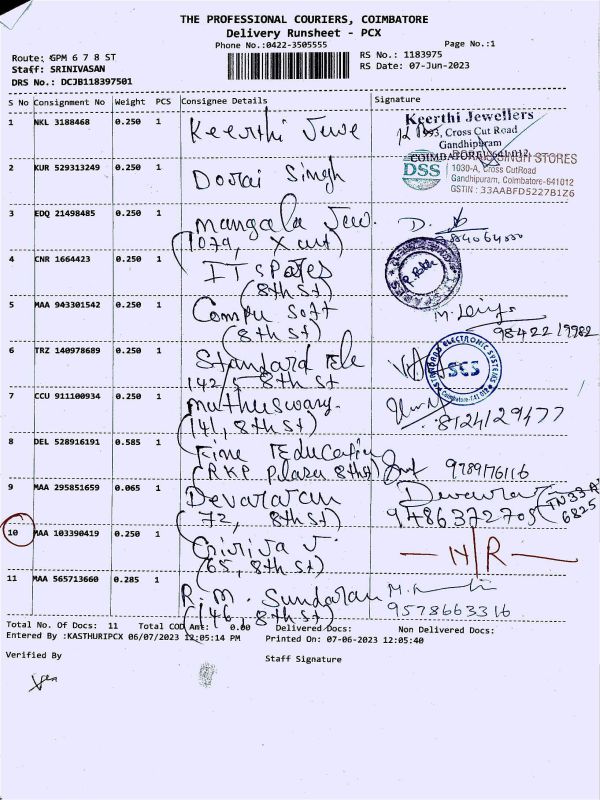 THE PROFESSIONAL COURIERS, COIMBATORE
Delivery Runsheet - PCX
Phone No.:0422-3505555
Page No.:1
Route: GPM 6 7 8 ST
RS No.: 1183975
Staff: SRINIVASAN
RS Date: 07-Jun-2023
DRS No.: DCJB118397501
S No Consignment No Weight PCS Consignee Details Signature
1 NKL 3188468 0.250 1 Keerthi Jewe
Keerthi Jewellers
1993, Cross Cut Road
Gandhipuram
COIMBATORE-641 012
2 KUR 529313249 0.250 1 Dorai Singh
DORAI SINGH STORES
DSS 1030-A, Cross CutRoad
Gandhipuram, Coimbatore-641012
GSTIN : 33AABFD5227B1Z6
3 EDQ 21498485 0.250 1 Mangala Jew.
(1079, X cut)
4 CNR 1664423 0.250 1 IT spares
(8th St)
5 MAA 943301542 0.250 1 Compu Soft
(8th St)
9842219982
6 TRZ 140978689 0.250 1 Standard Ele
142/5 8th St
STANDARD ELECTRONIC SYSTEMS
SES
Coimbatore-641 012
7 CCU 911100934 0.250 1 Muthuswamy.
(141, 8th St)
8124129477
8 DEL 528916191 0.585 1 Time Education
(RKP Plaza 8th St)
9789176116
9 MAA 295851659 0.065 1 Devararan
(72, 8th St)
9486372705
TN33A
6825
10 MAA 103390419 0.250 1 Girija J.
(65, 8th St)
N/R
11 MAA 565713660 0.285 1 R.M. Sundaran
(146, 8th St)
9578663316
Total No. Of Docs: 11 Total COD Amt: 0.00 Delivered Docs: Non Delivered Docs:
Entered By :KASTHURIPCX 06/07/2023 12:05:14 PM Printed On: 07-06-2023 12:05:40
Verified By
Staff Signature